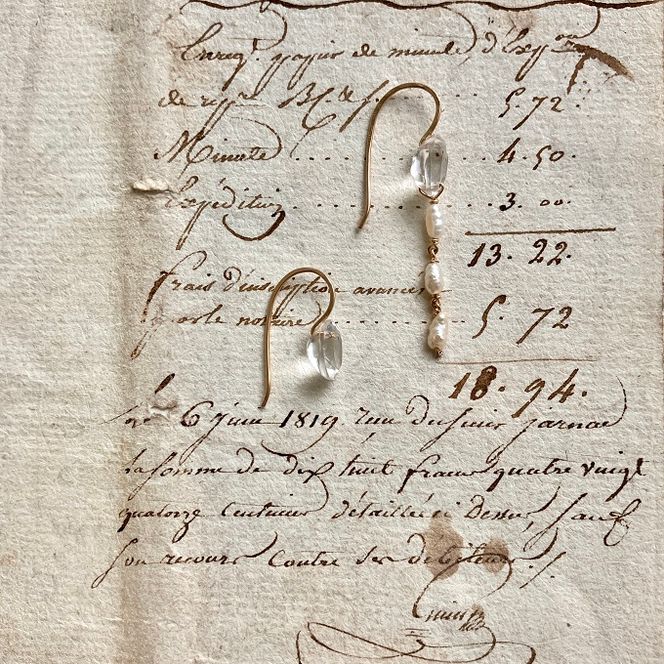 Enregt. papier de minute, d'Exp.on
de rép.re &. &. 5. 72.
Minute 4. 50.
Expédition 3. 00.
13. 22.
frais d'inscription avancés
par le notaire 5. 72
18. 94.
6 juin 1819. reçu du sieur jarnac
la somme de dix huit francs quatre vingt
quatorze centimes détaillée ci Dessus, sauf
son recours contre les débiteurs ./.